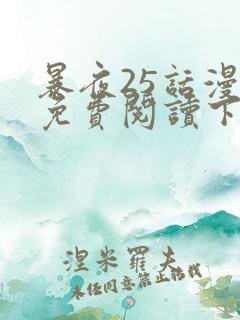 暴夜25話漫
免費閱讀下
涅米羅夫
未經同意禁止轉載